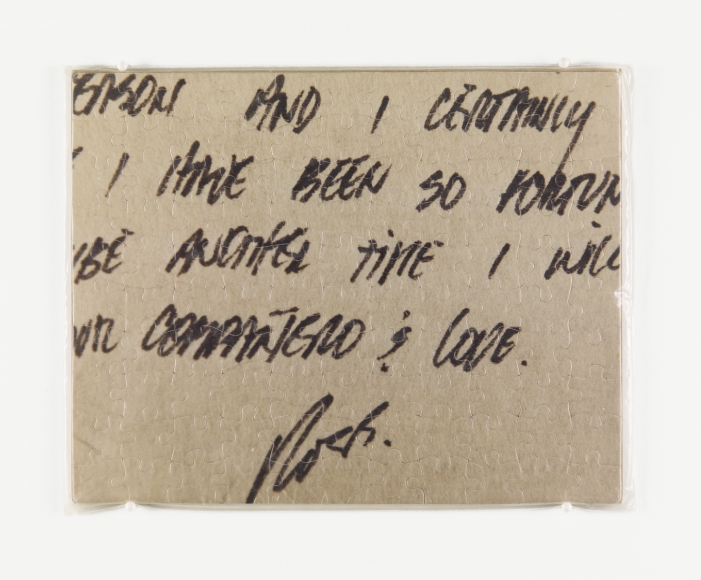 EASON AND I CERTAINLY
I HAVE BEEN SO FORTUN
YBE ANOTHER TIME I WILL
UR COMPAÑERO & LOVE.
Ross.